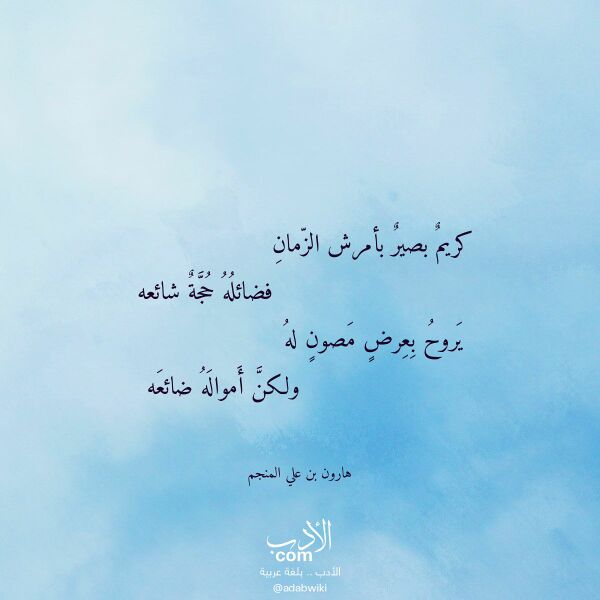 كريمٌ بصيرٌ بأمرش الزّمانِ
فضائلُهُ حُجَّةٌ شائعه
يَروحُ بِعِرضٍ مَصونٍ لهُ
ولكنَّ أَموالَهُ ضائعَه
هارون بن علي المنجم
الأدب
com
الأدب .. بلغة عربية
@adabwiki